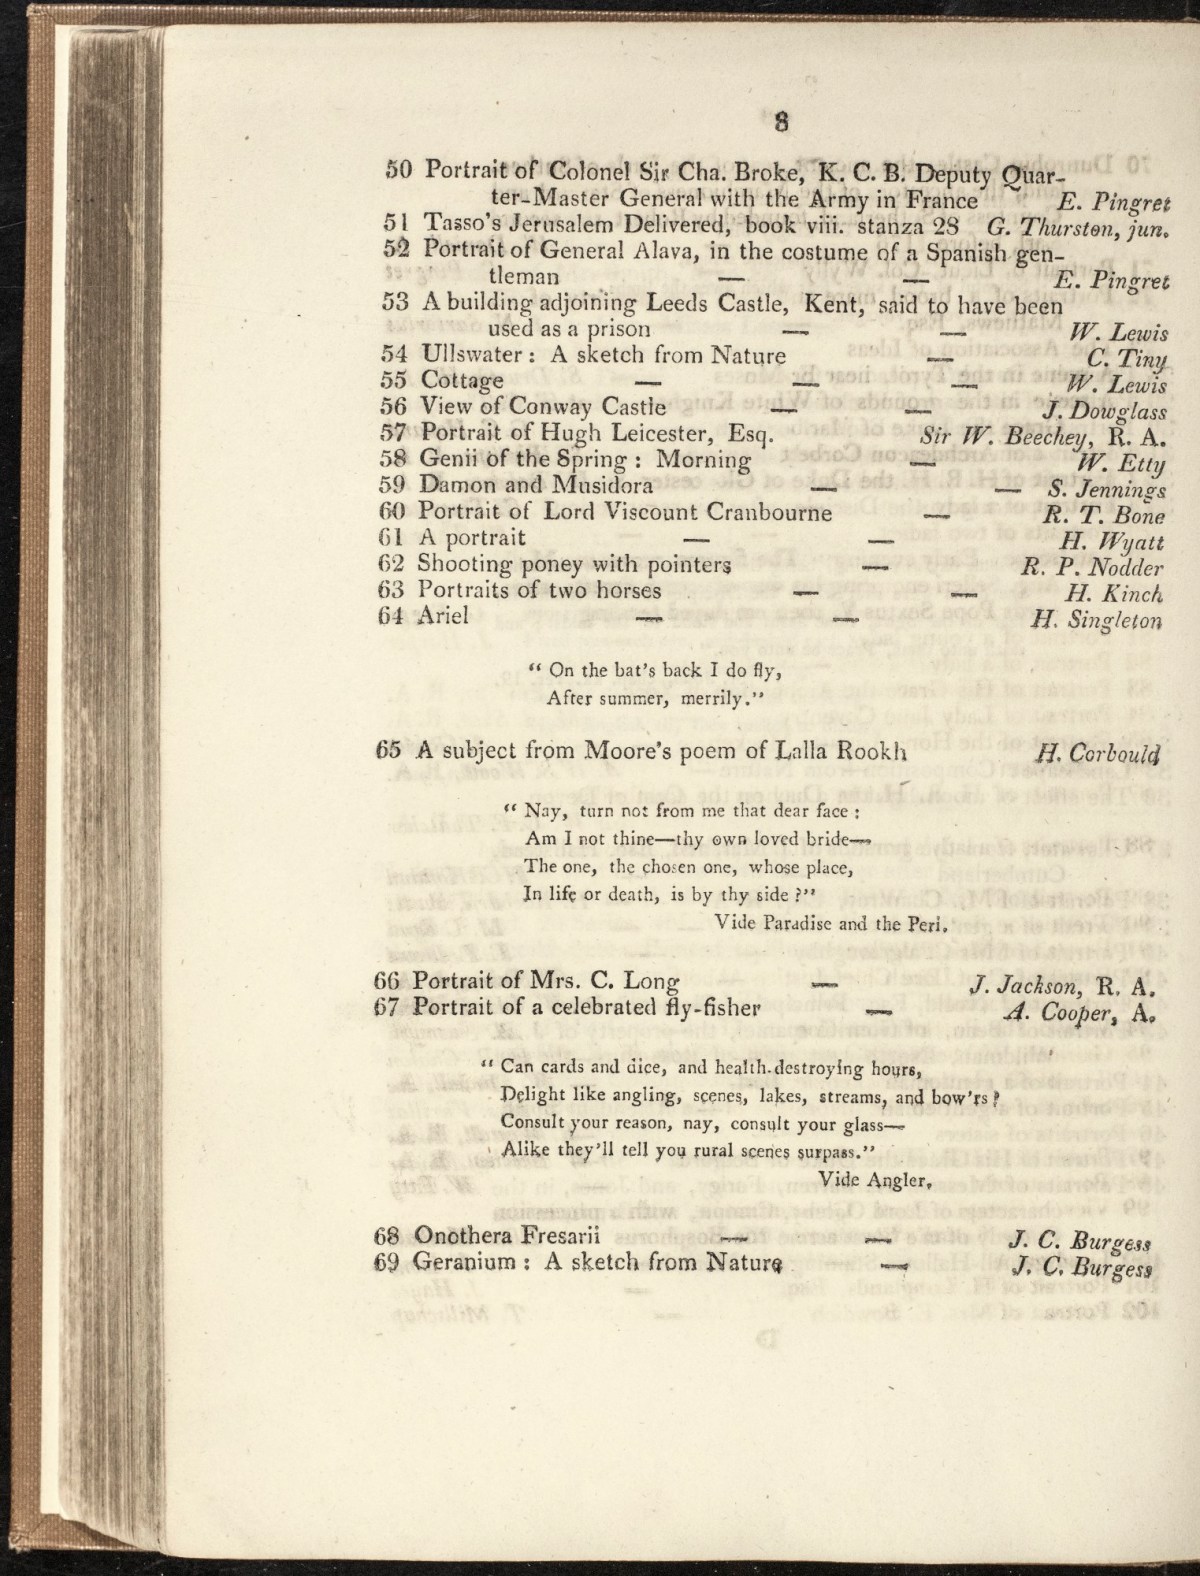 8
50 Portrait of Colonel Sir Cha. Broke, K. C. B. Deputy Quar-
ter-Master General with the Army in France E. Pingret
51 Tasso's Jerusalem Delivered, book viii. stanza 28 G. Thurston, jun.
52 Portrait of General Alava, in the costume of a Spanish gen-
tleman — — E. Pingret
53 A building adjoining Leeds Castle, Kent, said to have been
used as a prison — — W. Lewis
54 Ullswater : A sketch from Nature — C. Tiny
55 Cottage — — — W. Lewis
56 View of Conway Castle — — J. Dowglass
57 Portrait of Hugh Leicester, Esq. Sir W. Beechey, R. A.
58 Genii of the Spring : Morning — W. Etty
59 Damon and Musidora — — S. Jennings
60 Portrait of Lord Viscount Cranbourne — R. T. Bone
61 A portrait — — H. Wyatt
62 Shooting poney with pointers — R. P. Nodder
63 Portraits of two horses — — H. Kinch
64 Ariel — — H. Singleton
“ On the bat's back I do fly,
After summer, merrily.”
65 A subject from Moore's poem of Lalla Rookh H. Corbould
“ Nay, turn not from me that dear face :
Am I not thine—thy own loved bride—
The one, the chosen one, whose place,
In life or death, is by thy side ?”
Vide Paradise and the Peri.
66 Portrait of Mrs. C. Long — J. Jackson, R. A.
67 Portrait of a celebrated fly-fisher — A. Cooper, A.
“ Can cards and dice, and health-destroying hours,
Delight like angling, scenes, lakes, streams, and bow'rs ?
Consult your reason, nay, consult your glass—
Alike they'll tell you rural scenes surpass.”
Vide Angler.
68 Onothera Fresarii — — J. C. Burgess
69 Geranium : A sketch from Nature — J. C. Burgess